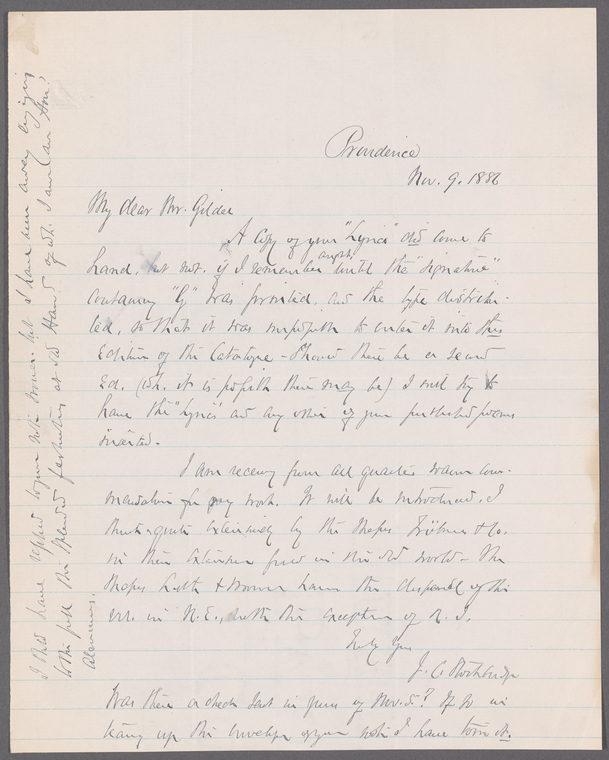 Providence
Nov. 9. 1886
My dear Mr. Gilder
A copy of your "Lyrics" did come to
hand, but not, if I remember aright, until the "signature"
containing "G" was printed, and the type distribu-
ted, so that it was impossible to enter it into this
Edition of the Catalogue - Should there be a second
Ed. (wh. it is possible there may be) I will try to
have the "Lyrics" and any other of your published poems
inserted.
I am receiving from all quarters warm com-
mendations for my work. It will be introduced, I
think quite extensively by the Messrs Trübner & Co.
in their extensive field in the old world - The
Messrs have the disposal of the
in N.E., with the exception of R.I.
Truly Yrs
J. C. Stockbridge
Was there a check sent in yours of Nov. 5? If so in
tearing up the envelope of your note I have torn it.
I shd have replied to your note sooner but I have been away
to the full the splendid festivities at old Harvd of wh. I am (an Hon.)
Alumnus.